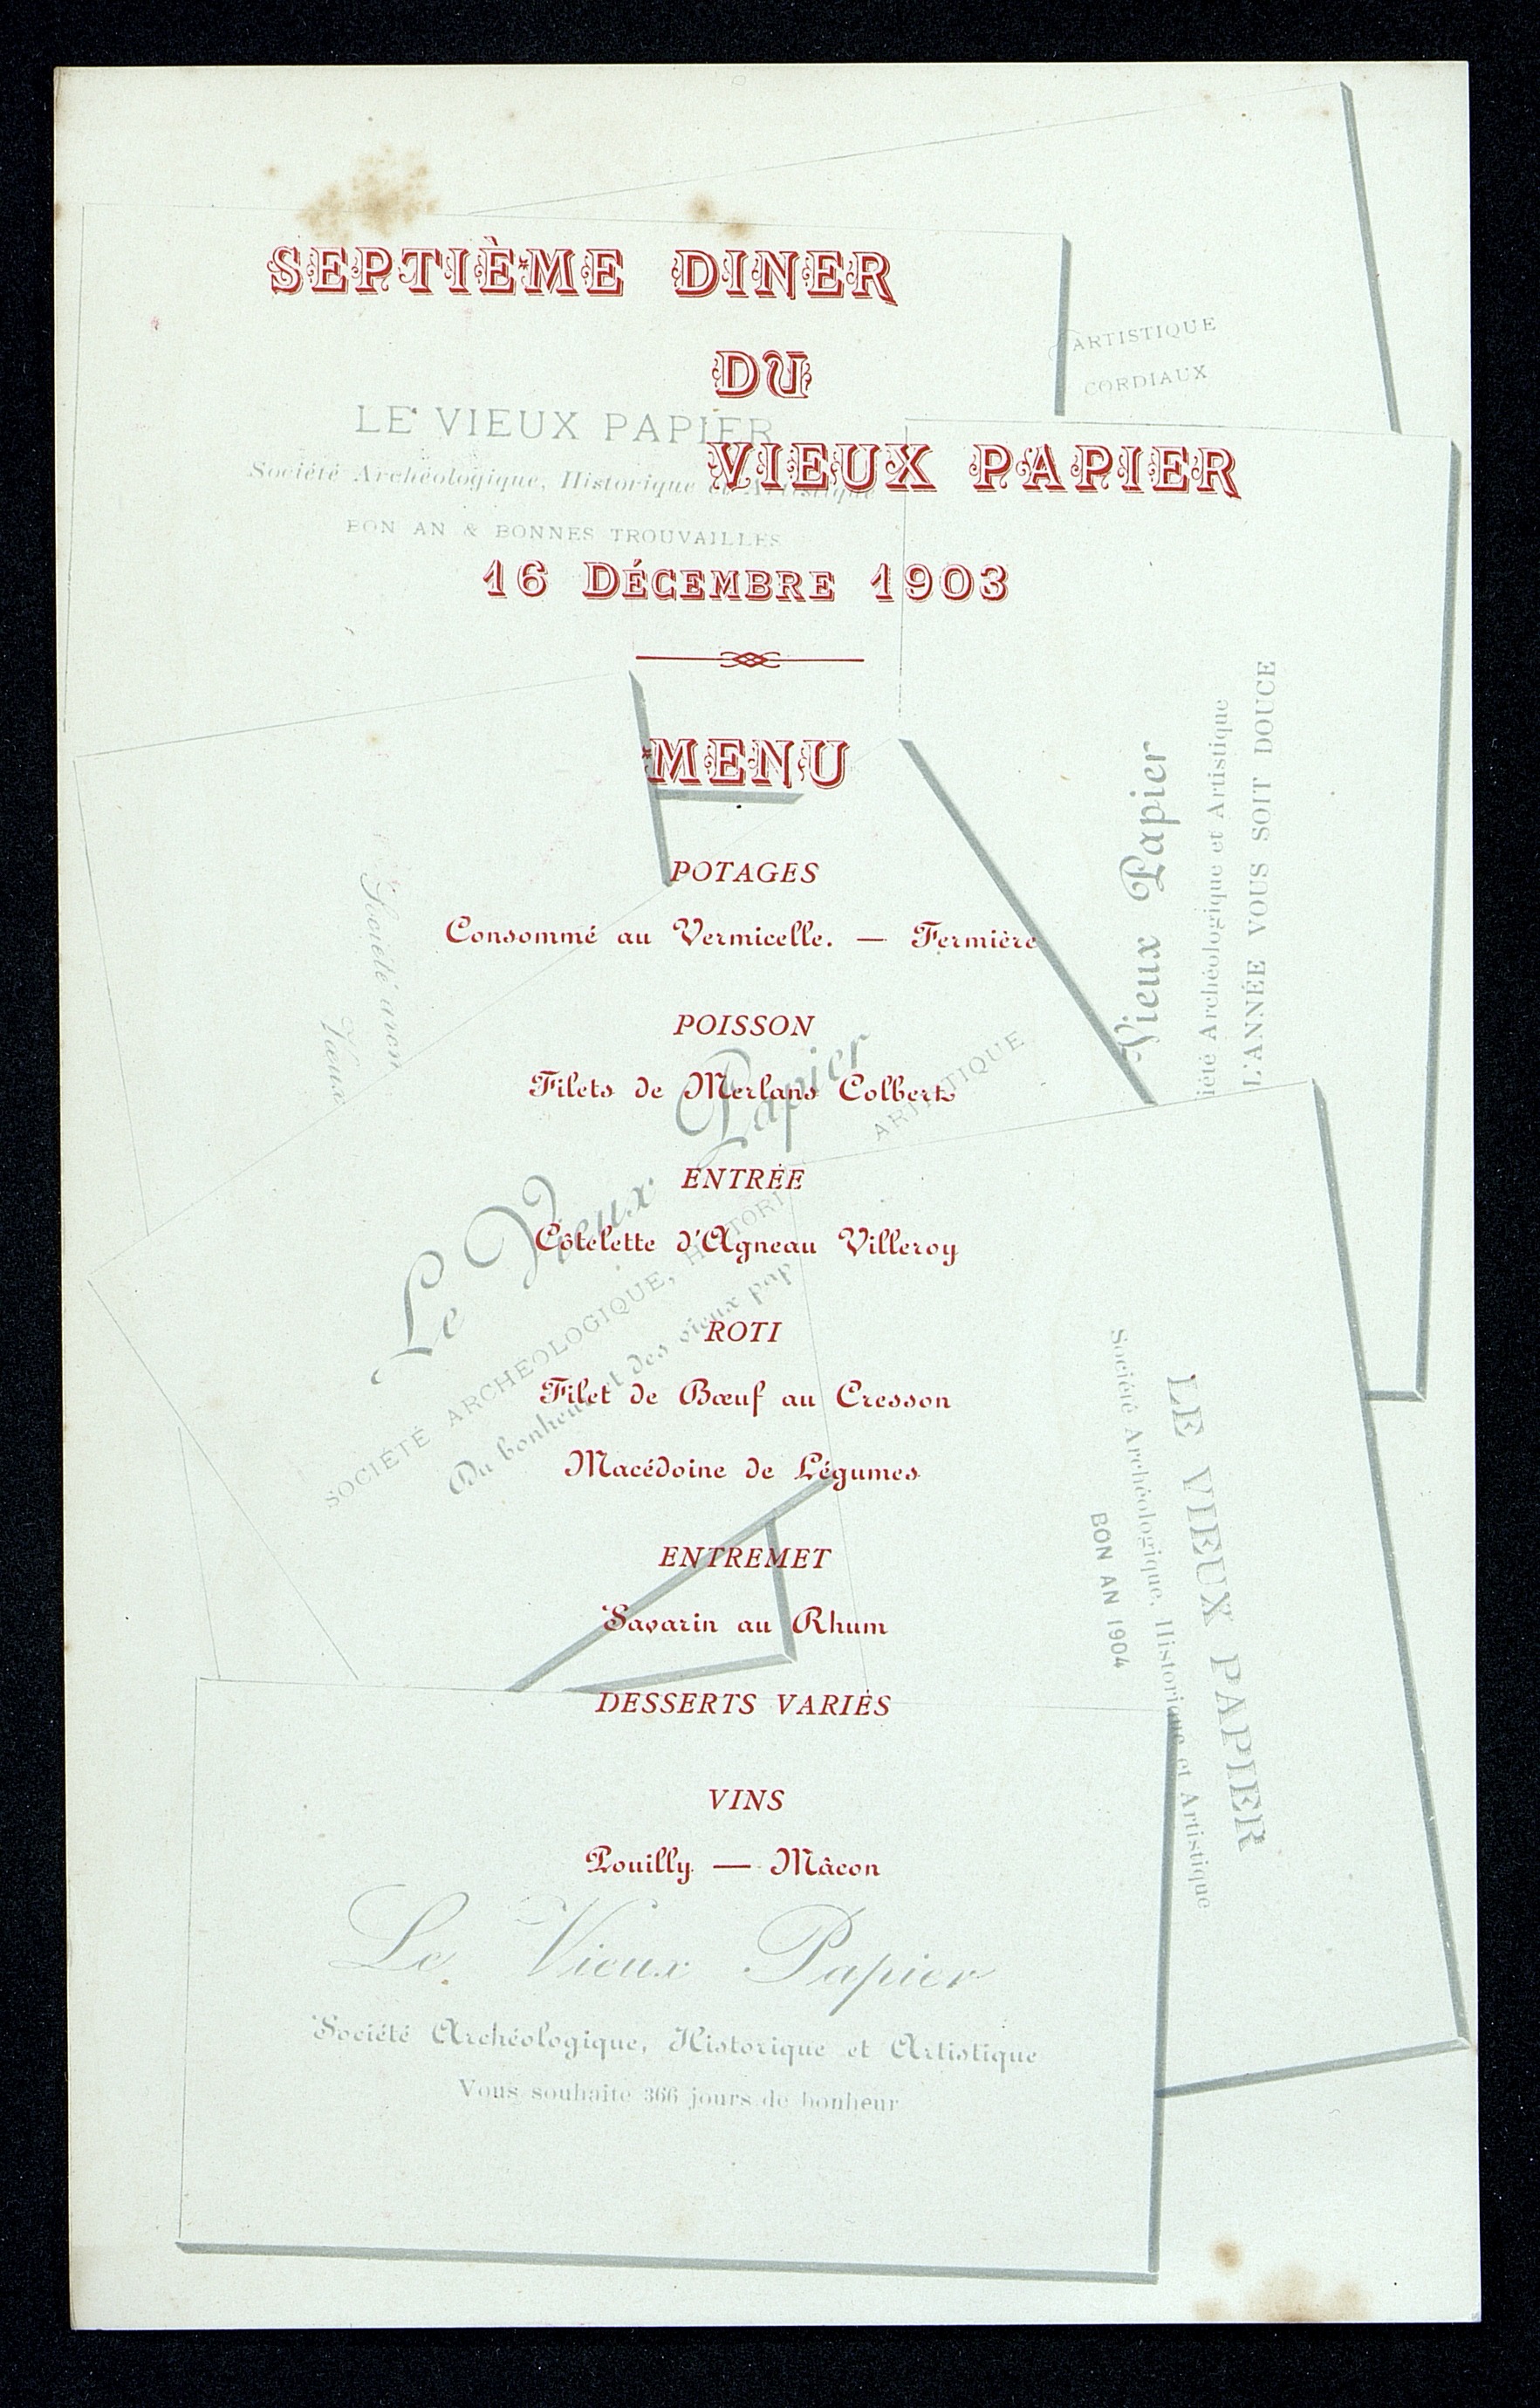 SEPTIÈME DINER
DU
VIEUX PAPIER
16 DÉCEMBRE 1903
MENU
POTAGES
Consommé au Vermicelle. — Fermière
POISSON
Filets de Merlans Colbert
ENTRÉE
Côtelette d'Agneau Villeroy
ROTI
Filet de Bœuf au Cresson
Macédoine de Légumes
ENTREMET
Savarin au Rhum
DESSERTS VARIÉS
VINS
Pouilly — Mâcon
ARTISTIQUE
CORDIAUX
LE VIEUX PAPIER
Société Archéologique, Historique et Artistique
BON AN & BONNES TROUVAILLES
Vieux Papier
iété Archéologique et Artistique
L'ANNÉE VOUS SOIT DOUCE
Société
Vœux
Le Vieux Papier
SOCIÉTÉ ARCHÉOLOGIQUE, HISTORI ARTISTIQUE
Du bonheur et des vieux pap
LE VIEUX PAPIER
Société Archéologique, Historique et Artistique
BON AN 1904
Le Vieux Papier
Société Archéologique, Historique et Artistique
Vous souhaite 366 jours de bonheur